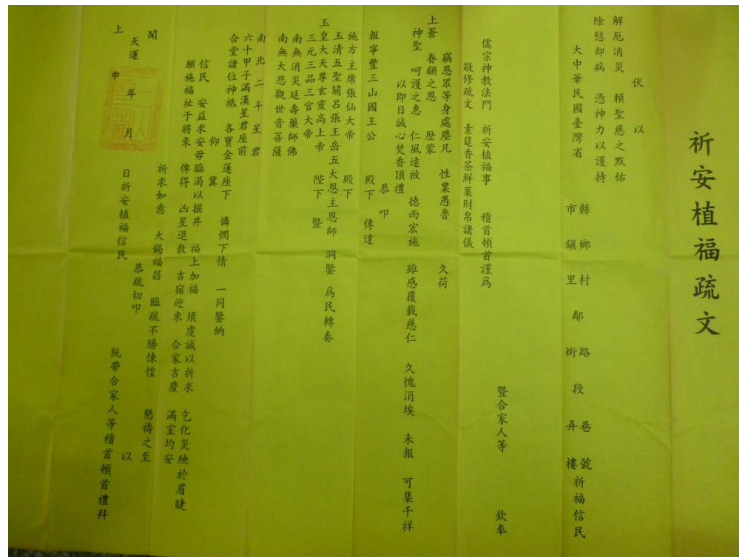 祈安植福疏文
伏以
解厄消災 賴聖慈之默佑
除愆却病 憑神力以護持
大中華民國臺灣省 縣市 鄉鎮 村里 鄰 路街 段 巷弄 號樓 祈福信民
暨合家人等 欽奉
儒宗神教法門 祈安植福事 稽首頓首謹爲
敬修疏文 素筵香茶鮮菓財帛諸儀
竊恩眾等身處塵凡 性稟愚魯 久荷
上蒼 眷顧之恩 歷蒙
神聖 呵護之惠 仁風遠被 德雨宏施 雖感覆載慈仁 久愧涓埃 未報 可集千祥
以即日誠心焚香頂禮
恭叩
報寧豐三山國王公 殿下 傳達
施方主席張仙大帝 殿下
玉清五聖關呂張王岳五大恩主恩師 洞鑒 爲民轉奏
玉皇大天尊玄靈高上帝 陛下 暨
三元三品三官大帝
南無消災延壽藥師佛
南無大悲觀世音菩薩
南北二斗星君
六十甲子滿漢星君座前
合堂諸位神祇 各寶金蓮座下 憐憫下情 一同鑒納
仰冀
信民 安益求安毋臨渴以掘井 福上加福 須虔誠以祈求 乞化災殃於眉睫
願施福祉于將來 俾得 凶星退散 吉宿迎來 合家吉慶 滿室均安
祈求如意 大錫福昌 臨疏不勝悚惶 懇禱之至
恭疏切叩 以
聞
上
天運 年 月 日祈安植福信民 統帶合家人等稽首頓首禮拜
申